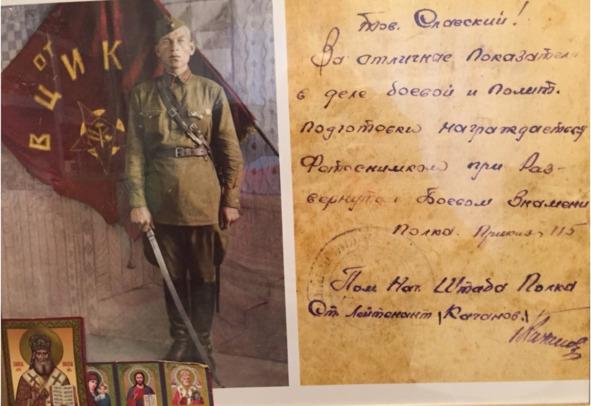 от
ВЦИК
Тов. Славский!
За отличные показатели
в деле боевой и полит.
подготовки награждается
Фотоснимком при Раз-
вернутом Боевом Знамени
Полка. Приказ 115
Пом Нач. Штаба Полка
Ст. Лейтенант /Катанов/